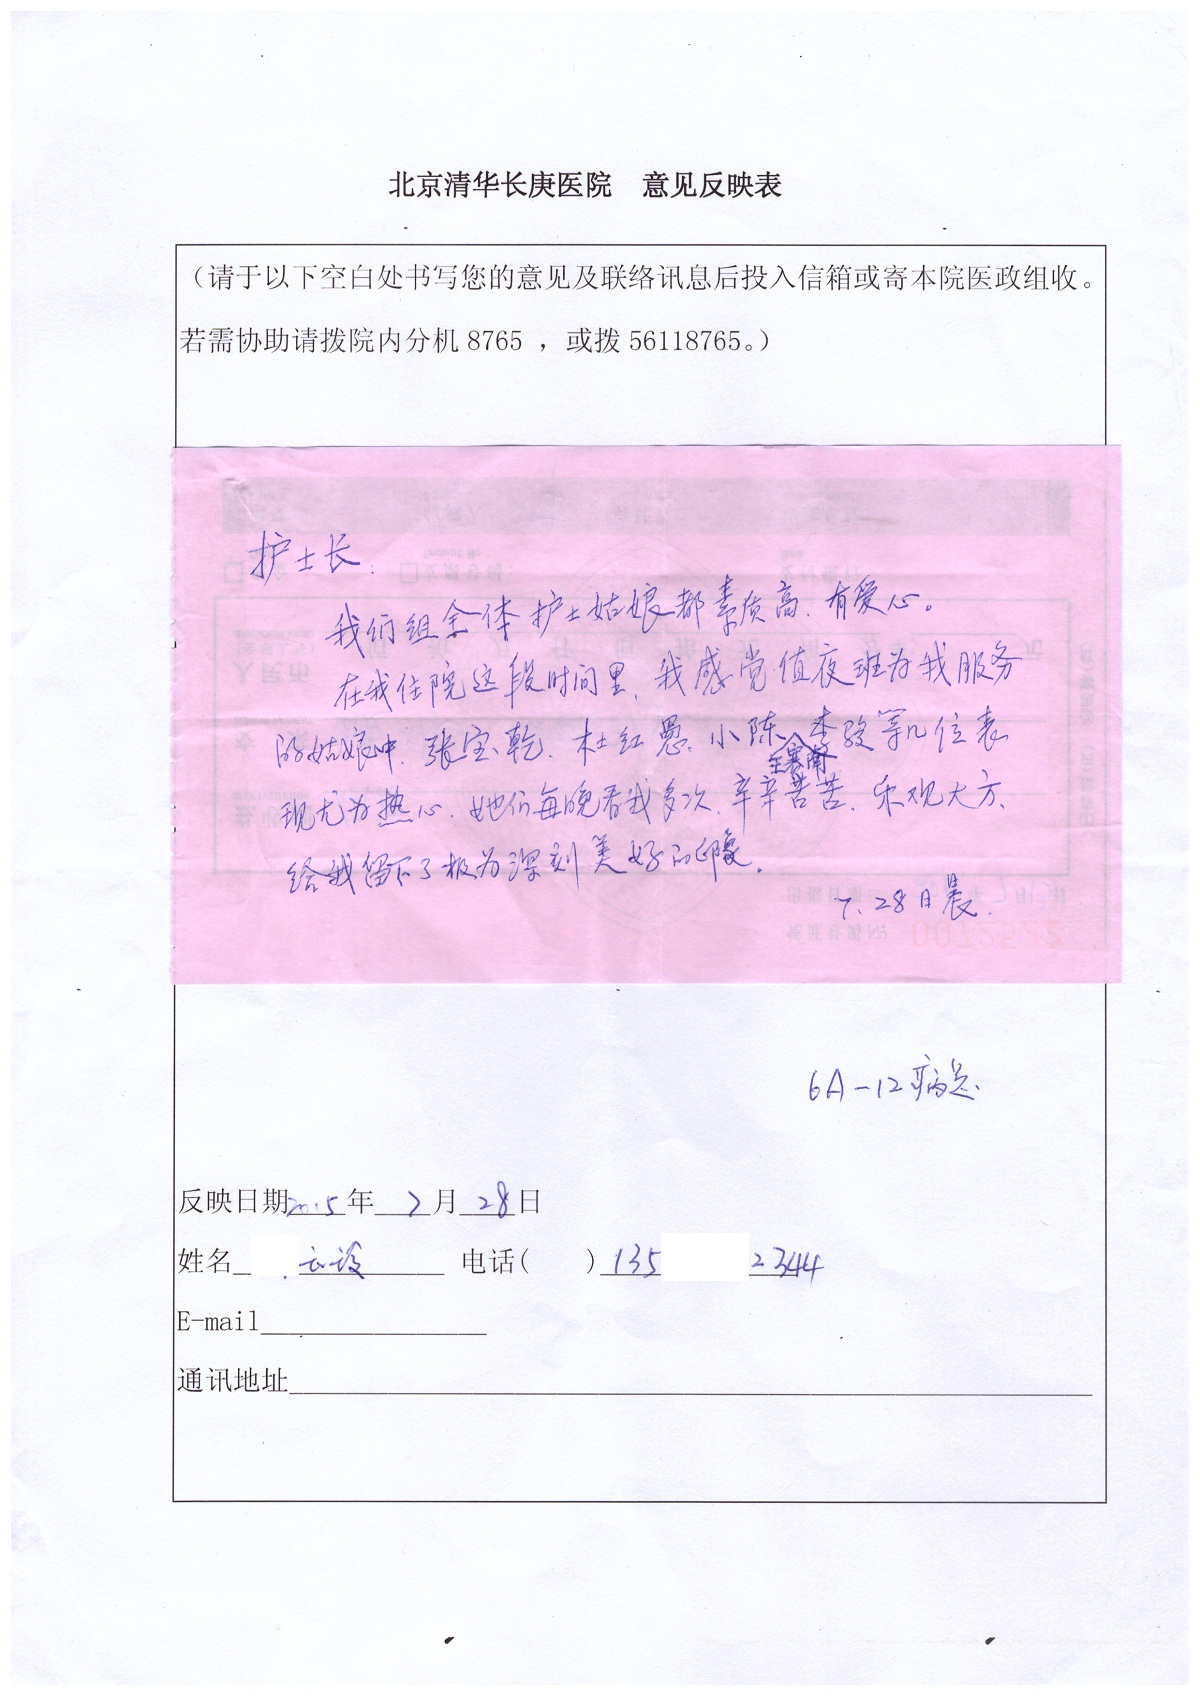 北京清华长庚医院 意见反映表
（请于以下空白处书写您的意见及联络讯息后投入信箱或寄本院医政组收。
若需协助请拨院内分机8765 ，或拨56118765。）
护士长：
我们组全体护士姑娘都素质高、有爱心。
在我住院这段时间里，我感觉值夜班为我服务
的姑娘中，张宝乾、杜红愚、小陈、李骏等几位表
王寒南
现尤为热心，她们每晚看我多次，辛辛苦苦，乐观大方，
给我留下了极为深刻美好的印象。
7.28日晨.
6A-12病员
反映日期2015年 7月 28日
姓名 电话( ) 135 2344
E-mail
通讯地址